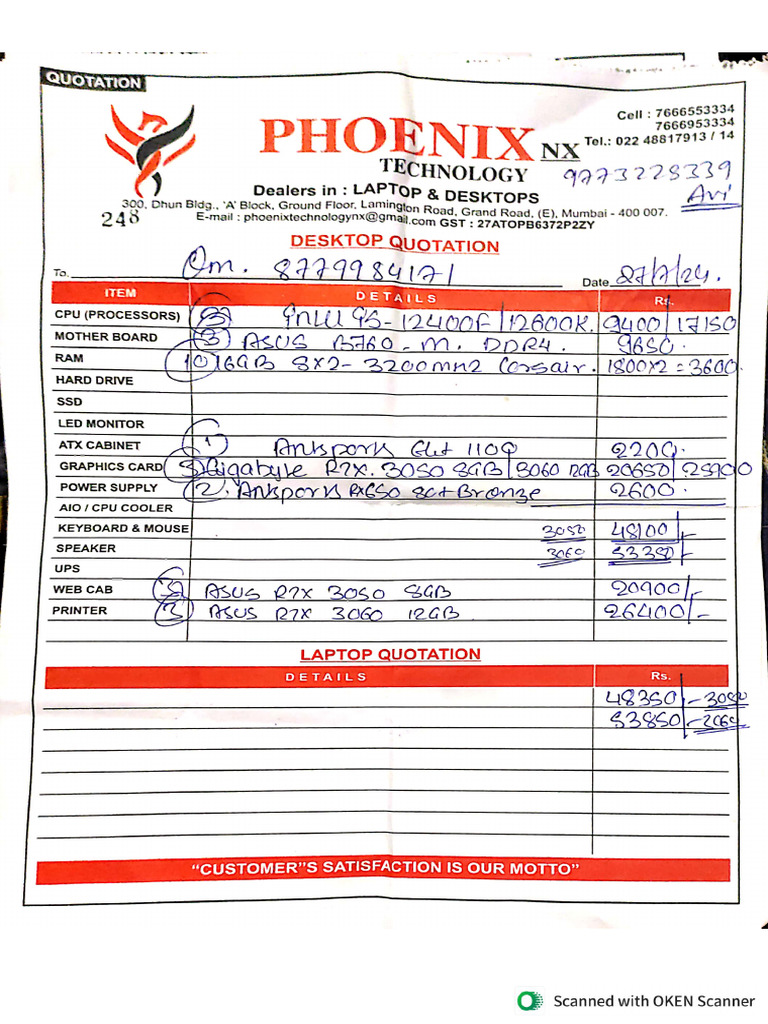 QUOTATION
PHOENIX NX
TECHNOLOGY
Cell : 7666553334
7666953334
Tel.: 022 48817913 / 14
9773228339
Avi
Dealers in : LAPTOP & DESKTOPS
300, Dhun Bldg., 'A' Block, Ground Floor, Lamington Road, Grand Road, (E), Mumbai - 400 007.
248
E-mail : phoenixtechnologynx@gmail.com GST : 27ATOPB6372P2ZY
DESKTOP QUOTATION
To. Om. 8779984171 Date 27/7/24.
ITEM DETAILS Rs.
CPU (PROCESSORS) (3) i5-12400F / 12600K. 9400 / 17150
MOTHER BOARD (3) ASUS B760-M. DDR4. 9650.
RAM (10) 16GB 8X2-3200MHZ Corsair. 1800X2 = 3600.
HARD DRIVE
SSD
LED MONITOR
ATX CABINET (1) 2200.
GRAPHICS CARD (3) Gigabyte RTX. 3050 8GB / 3060 12GB 20650 / 25900
POWER SUPPLY 2. Bronze 2600.
AIO / CPU COOLER
KEYBOARD & MOUSE 3050 48100/-
SPEAKER 3060 53350/-
UPS
WEB CAB (3) ASUS RTX 3050 8GB 20900/-
PRINTER (3) ASUS RTX 3060 12GB 26400/-
LAPTOP QUOTATION
DETAILS Rs.
48350/- 3050
53850/- 3060
"CUSTOMER"S SATISFACTION IS OUR MOTTO"
Scanned with OKEN Scanner